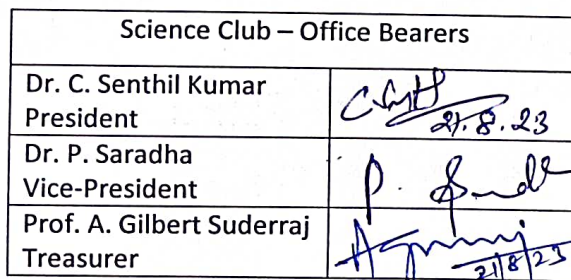 Science Club – Office Bearers
Dr. C. Senthil Kumar
President
21.8.23
Dr. P. Saradha
Vice-President
P.
Prof. A. Gilbert Suderraj
Treasurer
21/8/23